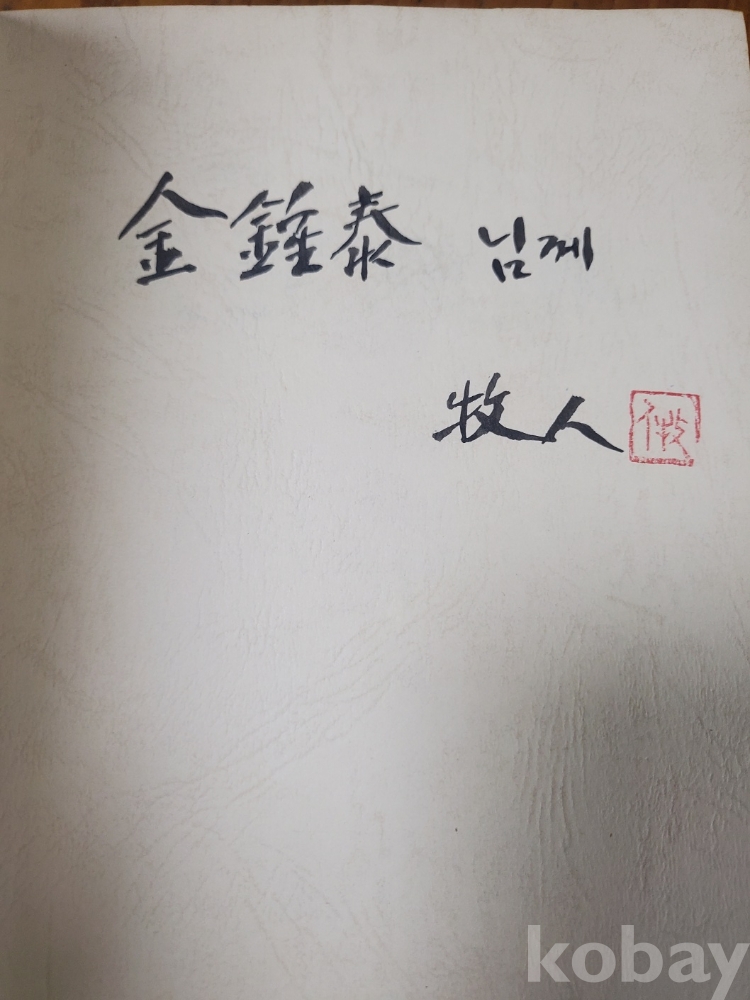 金鍾泰 님께
牧人
kobay